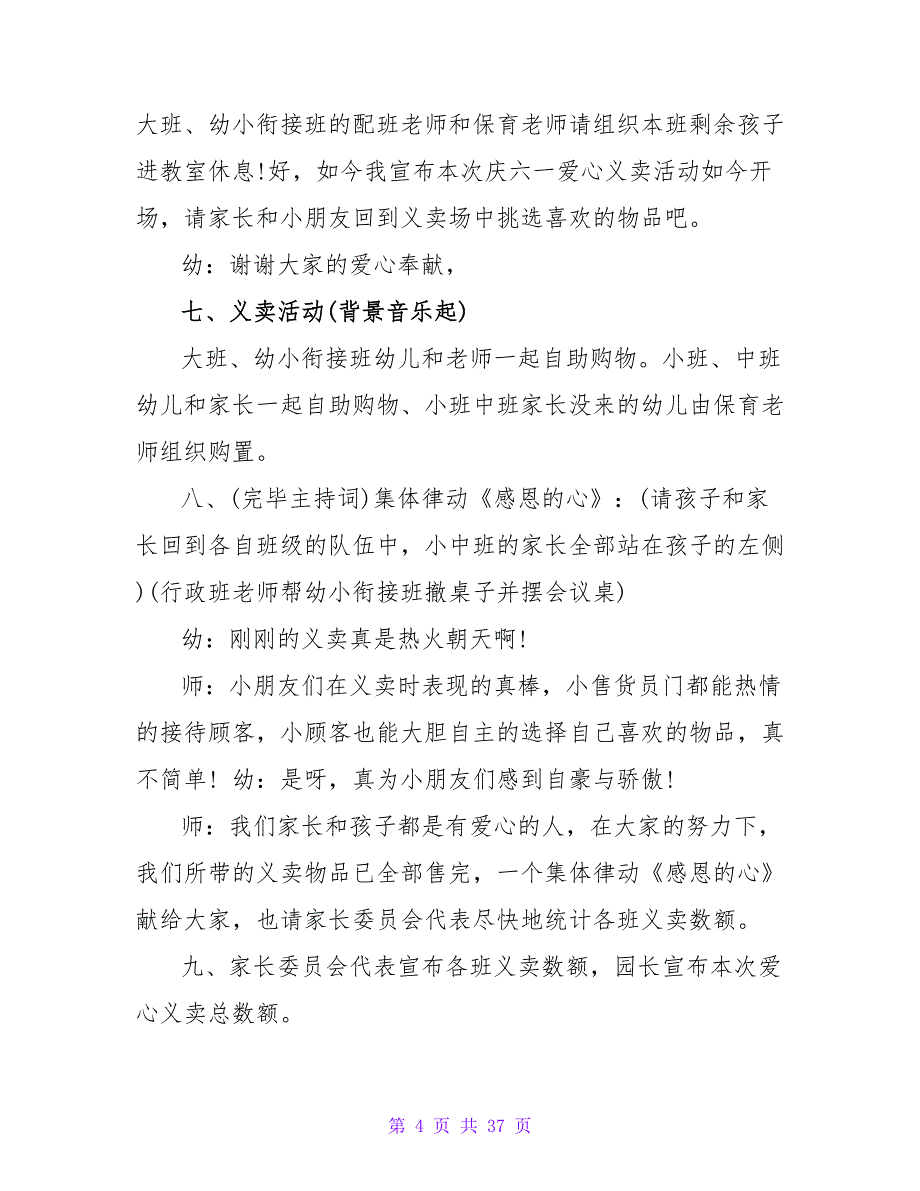 大班、幼小衔接班的配班老师和保育老师请组织本班剩余孩子
进教室休息!好，如今我宣布本次庆六一爱心义卖活动如今开
场，请家长和小朋友回到义卖场中挑选喜欢的物品吧。
幼：谢谢大家的爱心奉献，
七、义卖活动(背景音乐起)
大班、幼小衔接班幼儿和老师一起自助购物。小班、中班
幼儿和家长一起自助购物、小班中班家长没来的幼儿由保育老
师组织购置。
八、(完毕主持词)集体律动《感恩的心》：(请孩子和家
长回到各自班级的队伍中，小中班的家长全部站在孩子的左侧
)(行政班老师帮幼小衔接班撤桌子并摆会议桌)
幼：刚刚的义卖真是热火朝天啊!
师：小朋友们在义卖时表现的真棒，小售货员门都能热情
的接待顾客，小顾客也能大胆自主的选择自己喜欢的物品，真
不简单! 幼：是呀，真为小朋友们感到自豪与骄傲!
师：我们家长和孩子都是有爱心的人，在大家的努力下，
我们所带的义卖物品已全部售完，一个集体律动《感恩的心》
献给大家，也请家长委员会代表尽快地统计各班义卖数额。
九、家长委员会代表宣布各班义卖数额，园长宣布本次爱
心义卖总数额。
第 4 页 共 37 页